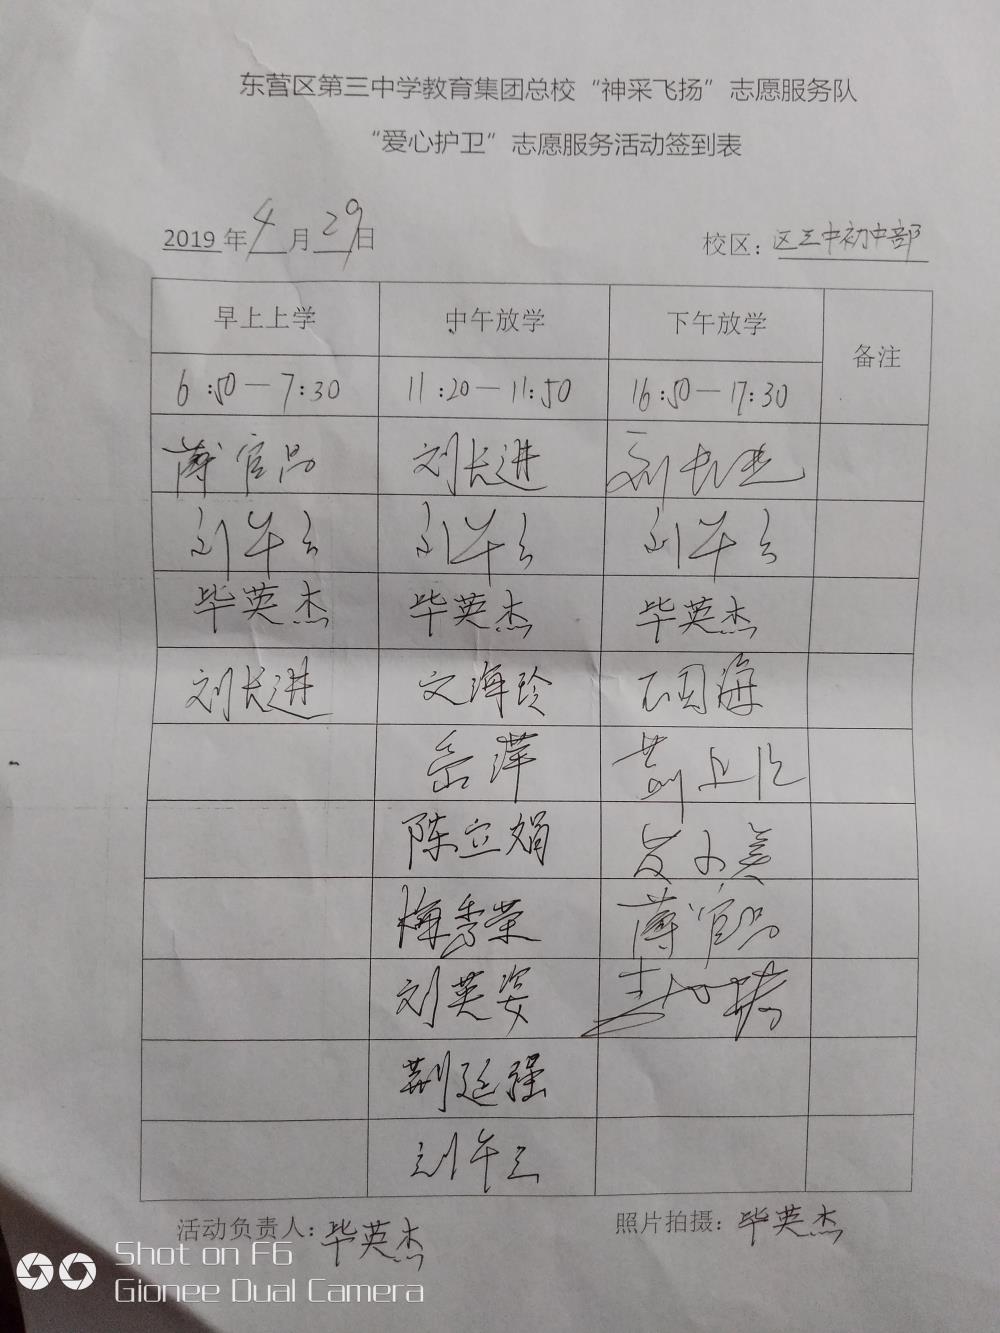 东营区第三中学教育集团总校“神采飞扬”志愿服务队
“爱心护卫”志愿服务活动签到表
2019年4月29日 校区：区三中初中部
早上上学 中午放学 下午放学 备注
6:50—7:30 11:20—11:50 16:50—17:30
薄官品 刘长进 刘长进
刘军 刘军 刘军
毕英杰 毕英杰 毕英杰
刘长进 文海玲 国海
岳萍
陈立娟 小美
梅秀荣 薄官品
刘英姿
荆延强
刘
活动负责人：毕英杰 照片拍摄：毕英杰
Shot on F6
Gionee Dual Camera